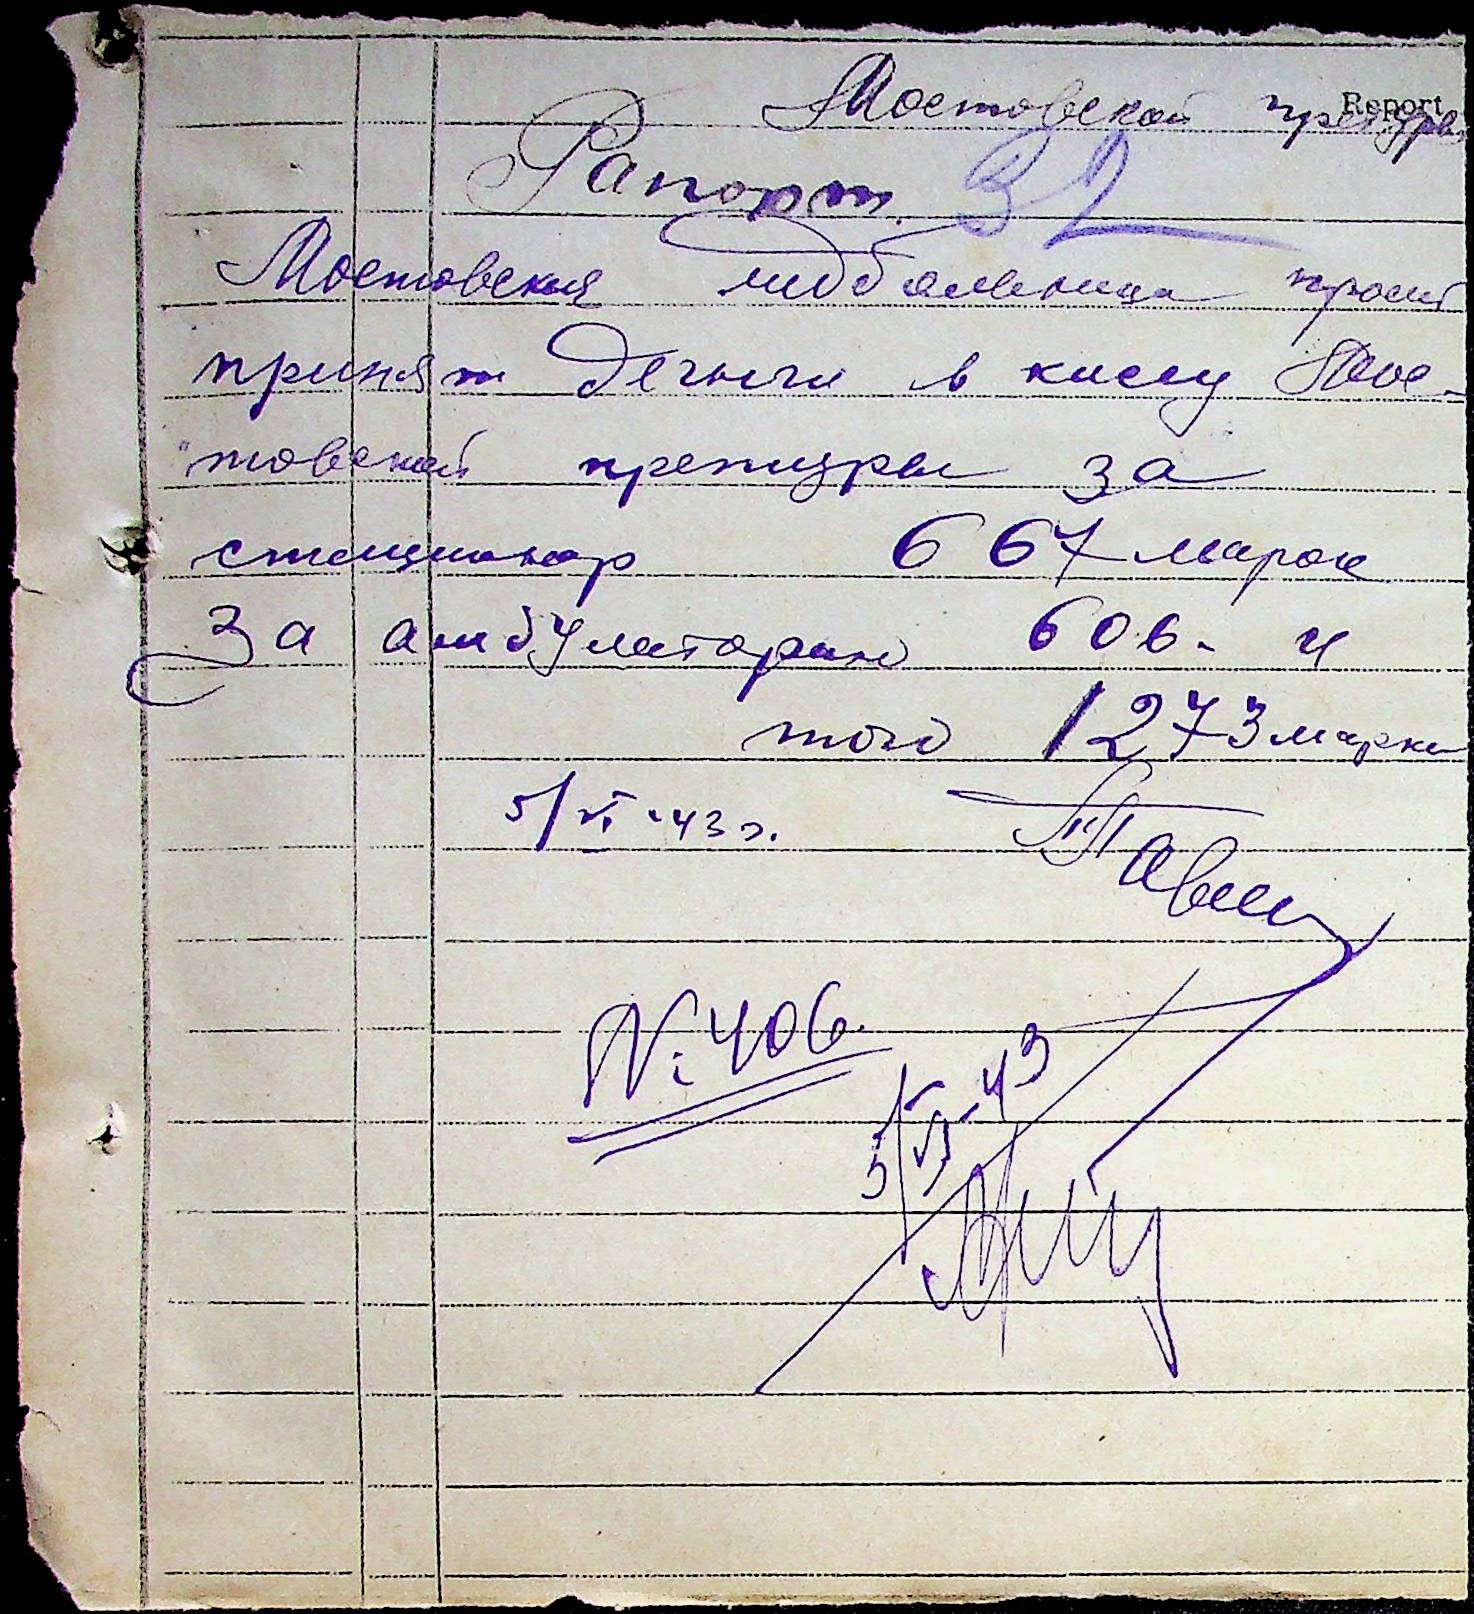 Report
Мостовской претуре
Рапорт. 32
Мостовская медбольница просит
принят деньги в кассу Мос-
товской претуры за
стационар 667 марок
За амбулаторию 606 - и
того 1273 марки
5/VI-43 г.
№ 406.
5/VI-43